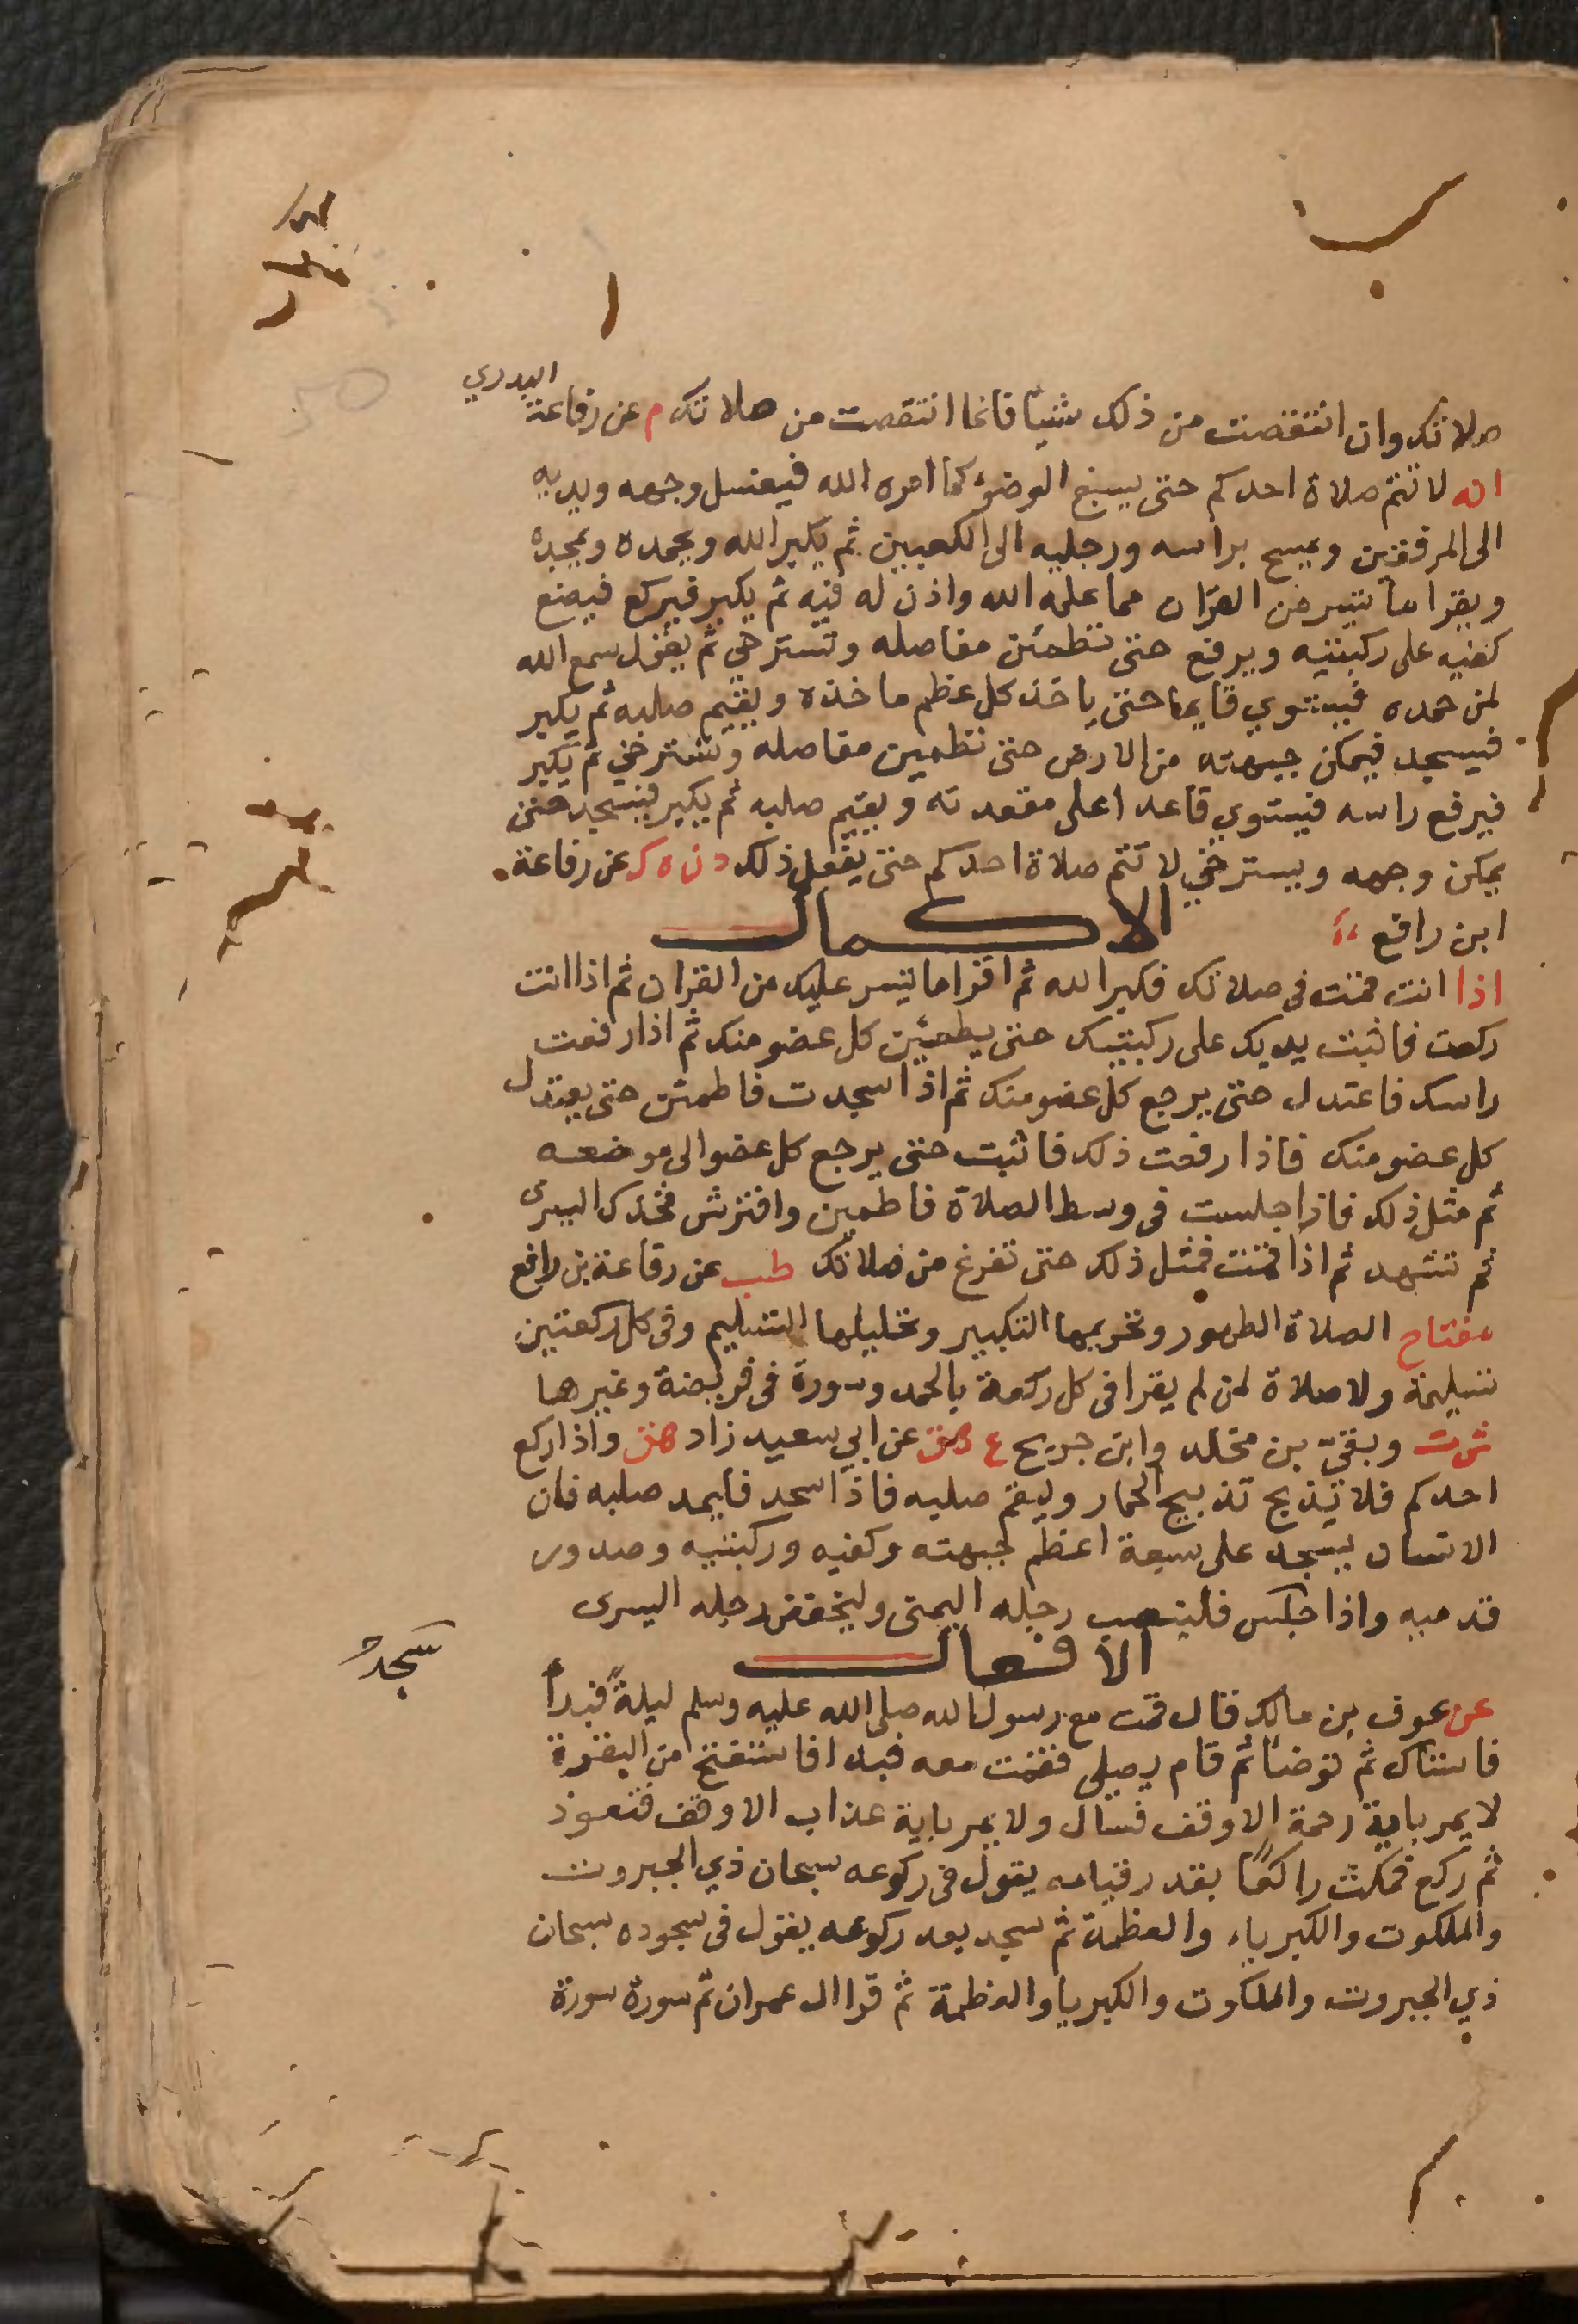 البدري
صلاتك وان انتقصت من ذلك شيئا فانما انتقصت من صلاتك م عن رفاعة
انه لا تتم صلاة احدكم حتى يسبغ الوضؤ كما امره الله فيغسل وجهه ويديه
الى المرفقين ويمسح براسه ورجليه الى الكعبين ثم يكبر الله ويحمده ويمجده
ويقرا ما تيسر من القران مما علمه الله واذن له فيه ثم يكبر فيركع فيضع
كفيه على ركبتيه ويرفع حتى تطمئن مفاصله وتسترخي ثم يقول سمع الله
لمن حمده فيستوي قايما حتى ياخذ كل عظم ماخذه ويقيم صلبه ثم يكبر
فيسجد فيمكن جبهته من الارض حتى تطمين مفاصله وتسترخي ثم يكبر
فيرفع راسه فيستوي قاعدا على مقعدته ويقيم صلبه ثم يكبر فيسجد حتى
يمكن وجهه ويسترخي لا تتم صلاة احدكم حتى يفعل ذلك د ن ه ك عن رفاعة
ابن رافع
الاكمال
اذا انت قمت في صلاتك فكبر الله ثم اقرا ما تيسر عليك من القران ثم اذا انت
ركعت فاثبت يديك على ركبتيك حتى يطمئن كل عضو منك ثم اذا رفعت
راسك فاعتدل حتى يرجع كل عضو منك ثم اذا سجدت فاطمئن حتى يعتدل
كل عضو منك فاذا رفعت ذلك فاثبت حتى يرجع كل عضو الى موضعه
ثم مثل ذلك فاذا جلست في وسط الصلاة فاطمين وافترش فخذك اليسرى
ثم تشهد ثم اذا قمت فمثل ذلك حتى تفرغ من صلاتك طب عن رفاعة بن رافع
مفتاح الصلاة الطهور وتحريمها التكبير وتحليلها التسليم وفي كل ركعتين
تسليمة ولا صلاة لمن لم يقرا في كل ركعة بالحمد وسورة في فريضة وغيرها
ش ت وبقيّ بن مخلد وابن جريج ع هق عن ابي سعيد زاد هق واذا ركع
احدكم فلا يذبح تذبيح الحمار وليقم صلبه فاذا سجد فليمد صلبه فان
الانسان يسجد على سبعة اعظم جبهته وكفيه وركبتيه وصدور
قدميه واذا جلس فلينصب رجله اليمنى وليخفض رجله اليسرى
الافعال
سجد
عن عوف بن مالك قال قمت مع رسول الله صلى الله عليه وسلم ليلة فبدأ
فاستاك ثم توضأ ثم قام يصلي فقمت معه فبدا فاستفتح من البقرة
لا يمر باية رحمة الا وقف فسال ولا يمر باية عذاب الا وقف فتعوذ
ثم ركع فمكث راكعًا بقدر قيامه يقول في ركوعه سبحان ذي الجبروت
والملكوت والكبرياء والعظمة ثم سجد بعد ركوعه يقول في سجوده سبحان
ذي الجبروت والملكوت والكبريا والعظمة ثم قرا ال عمران ثم سورة سورة